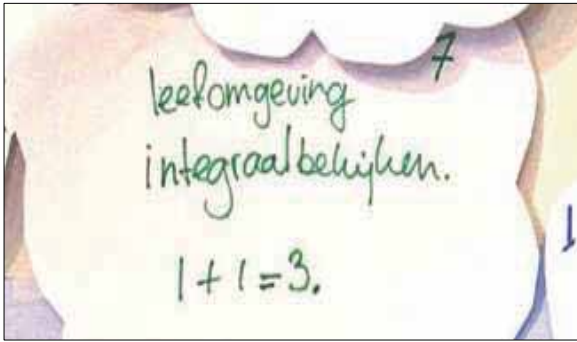 7
leefomgeving
integraal bekijken.
1+1=3.